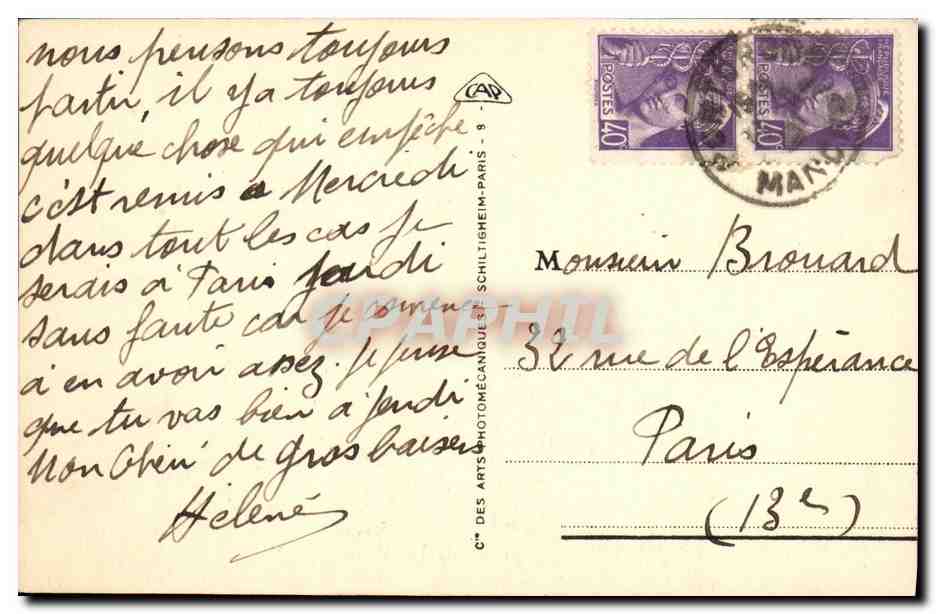 nous pensons toujours
partir, il y a toujours
quelque chose qui empêche
c'est remis a Mercredi
dans tout les cas je
serais à Paris Jeudi
sans faute car je commence
à en avoir assez. Je pense
que tu vas bien a Jeudi
Mon Chéri de gros baisers
Hélène
CAP
Cie DES ARTS PHOTOMÉCANIQUES SCHILTIGHEIM-PARIS - 8 -
POSTES
40c
POSTES
40c
Monsieur Brouard
32 rue de l'Espérance
Paris
(13e)
CPAPHIL